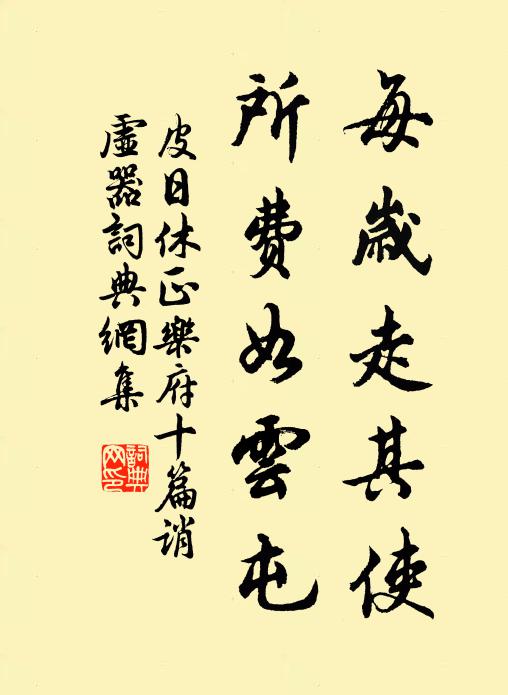 每歲走其使
所費如雲屯
皮日休正樂府十篇誚
虛器詞典網集
詞典網印